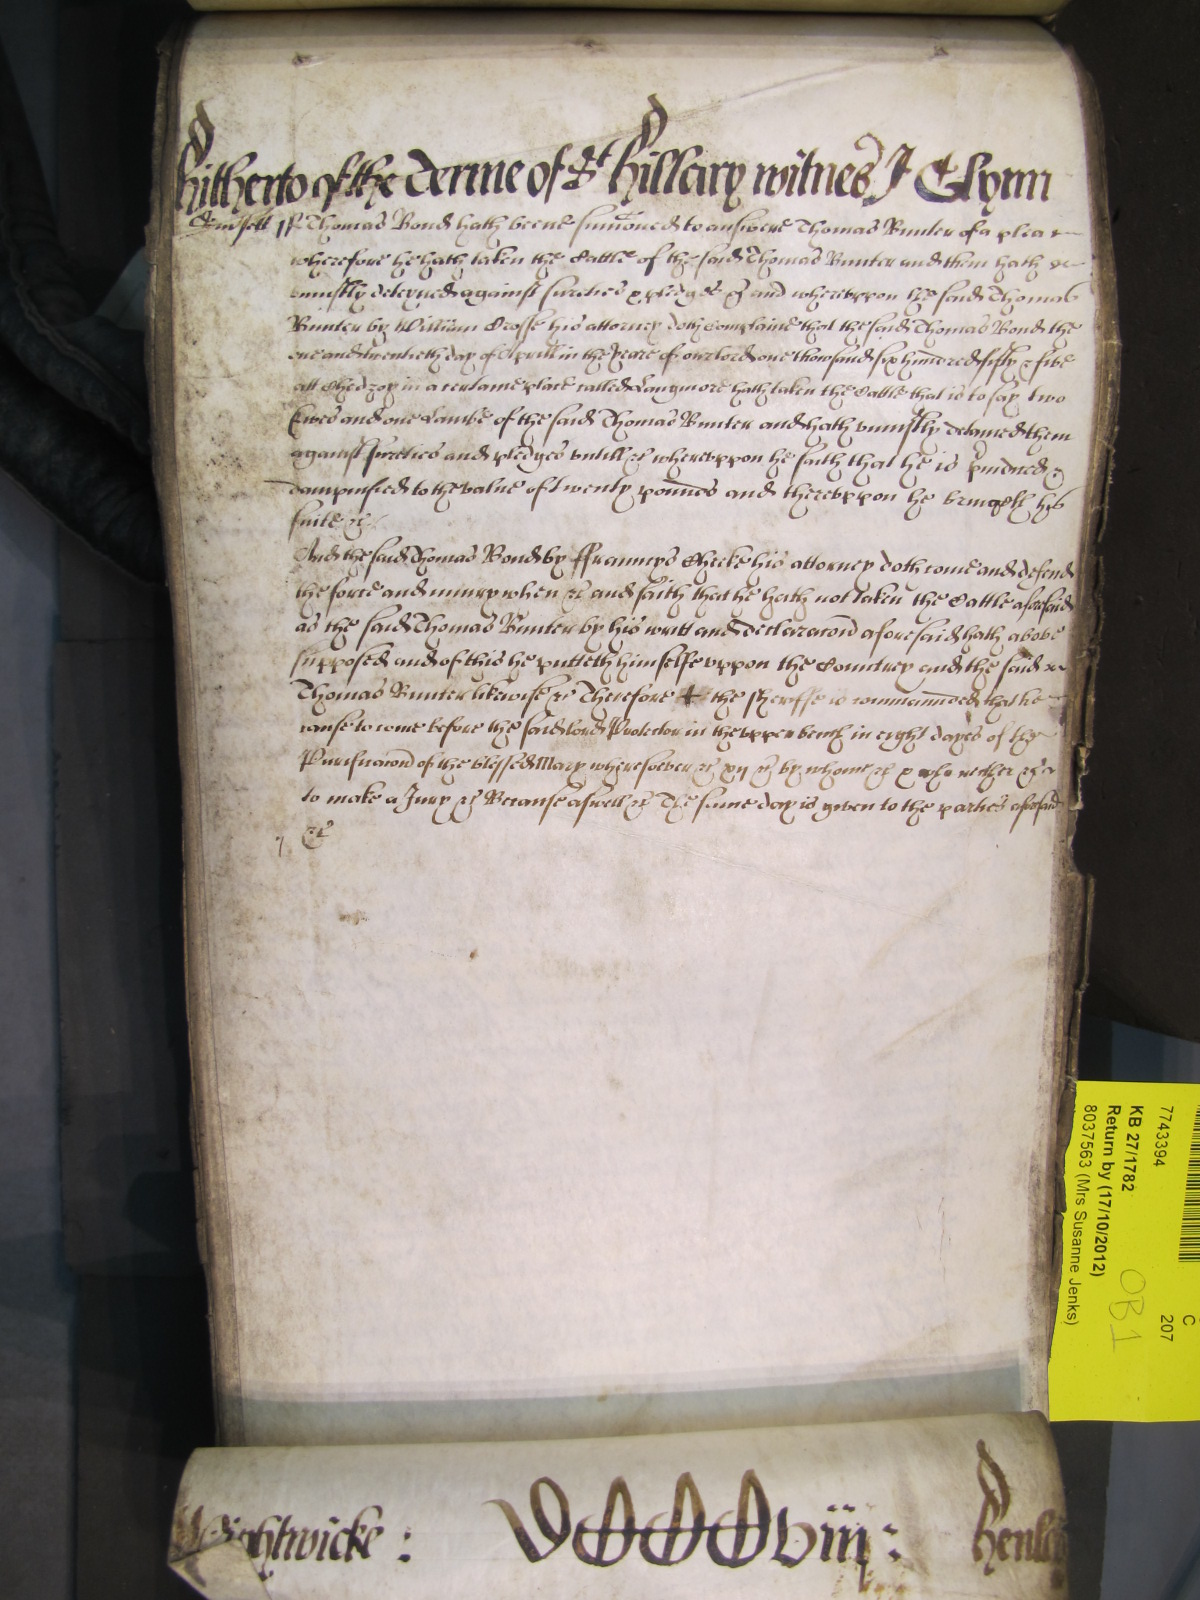 hitherto of the Terme of St Hillary witnes J Glynn
Somsett ss Thomas Bond hath beene sum̄oned to answere Thomas Bunter of a plea
wherefore he hath taken the Cattle of the said Thomas Bunter and them hath
uniustly deteyned against sureties & pledges &c and whereuppon the said Thomas
Bunter by William Crosse his attorney doth Complaine that the said Thomas Bond the
one and twentieth day of Aprill in the yeare of our lord one thowsand six hundred fifty & five
att Chedzoy in a certaine place called Langmore hath taken the Cattle that is to say two
Ewes and one Lambe of the said Thomas Bunter and hath uniustly detained them
against sureties and pledges untill &c whereuppon he saith that he is &
dampnified to the value of twenty pounds and thereuppon he bringeth his
suite &c
And the said Thomas Bond by ffrauncys Cheeke his attorney doth come and defend
the force and iniury when &c and saith that he hath not taken the Cattle aforesaid
as the said Thomas Bunter by his writt and declaracon aforesaid hath above
supposed and of this he putteth himselfe uppon the Countrey and the said
Thomas Bunter likewise &c Therefore the Sheriffe is commaunded that he
cause to come before the said lord Protector in the upper bench in eight dayes of the
Purificacon of the blessed Mary wheresoever &c xij &c by whome &c neither &c
to make a Jury &c Because aswell &c The same day is given to the parties aforesaid
&c
7743394
KB 27/1782
Return by (17/10/2012)
8037563 (Mrs Susanne Jenks)
C
207
OB1
Wightwicke :
viij :
Henley